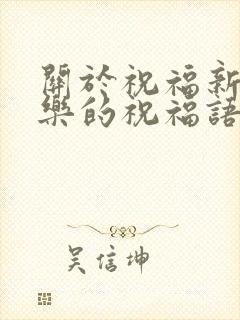 關於祝福新
樂的祝福語
吴信坤